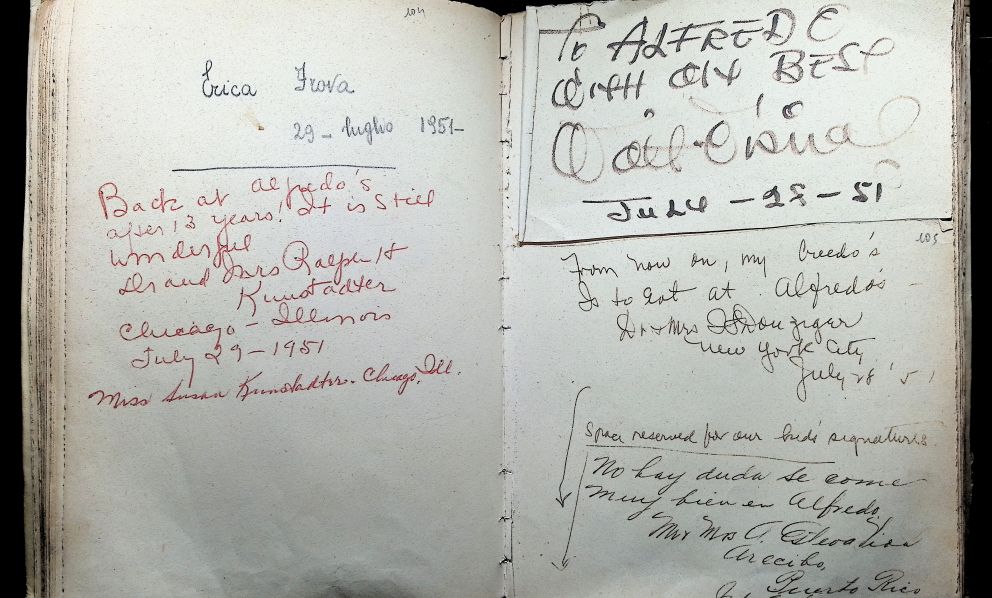 104
Erica Frova
29 - luglio 1951-
Back at Alfredo's
after 13 years! It is still
wonderful
Dr and Mrs Ralph H
Kunstadter
Chicago - Illinois
July 29-1951
Miss Susan Kunstadter. Chicago, Ill.
To ALFREDO
WITH MY BEST
JULY - 28 - 51
105
From now on, my Creedo's
Is to Eat at Alfredo's -
Dr & Mrs Danziger
New York City
July 28 '51
Space reserved for our kids' signatures
No hay duda se come
muy bien en Alfredo,
Mr Mrs A.
Arecibo,
Puerto Rico